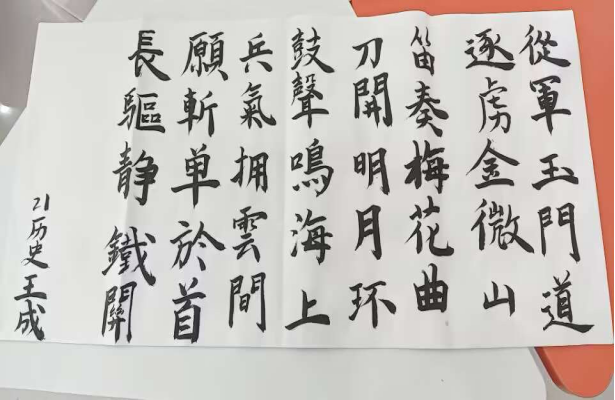 從軍玉門道
逐虏金微山
笛奏梅花曲
刀開明月环
鼓聲鳴海上
兵氣拥雲間
願斬单於首
長驅静鐵關
21历史王成